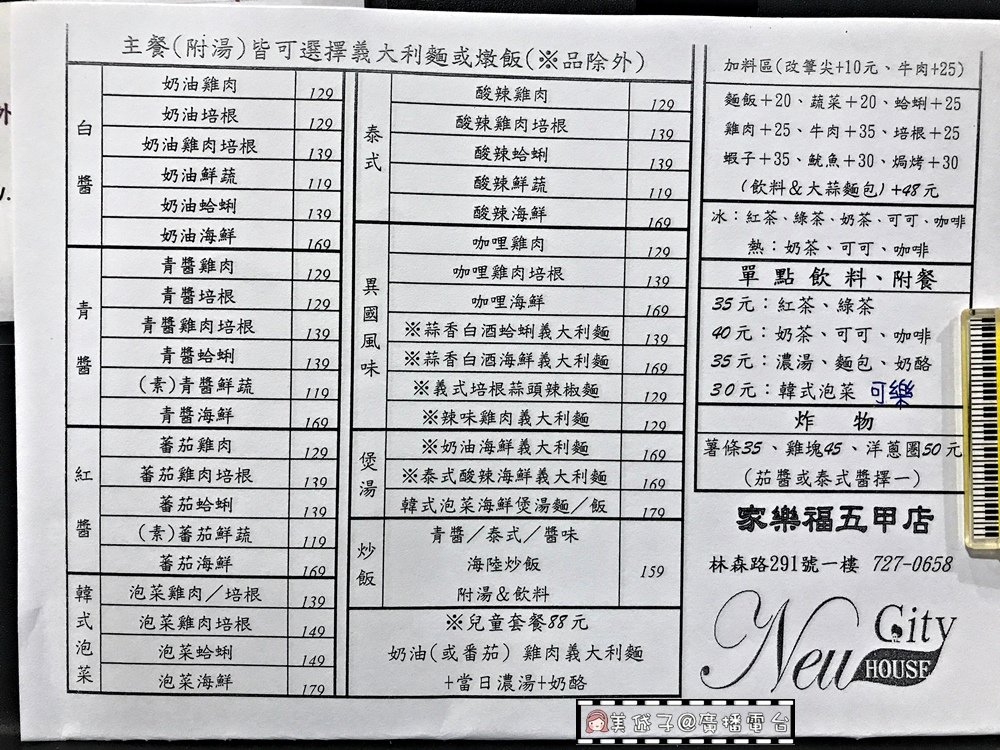 主餐(附湯)皆可選擇義大利麵或燉飯(※品除外)
白醬
奶油雞肉 129
奶油培根 129
奶油雞肉培根 139
奶油鮮蔬 119
奶油蛤蜊 139
奶油海鮮 169
青醬
青醬雞肉 129
青醬培根 129
青醬雞肉培根 139
青醬蛤蜊 139
(素)青醬鮮蔬 119
青醬海鮮 169
紅醬
蕃茄雞肉 129
蕃茄雞肉培根 139
蕃茄蛤蜊 139
(素)蕃茄鮮蔬 119
蕃茄海鮮 169
韓式泡菜
泡菜雞肉／培根 139
泡菜雞肉培根 149
泡菜蛤蜊 149
泡菜海鮮 179
泰式
酸辣雞肉 129
酸辣雞肉培根 139
酸辣蛤蜊 139
酸辣鮮蔬 119
酸辣海鮮 169
異國風味
咖哩雞肉 129
咖哩雞肉培根 139
咖哩海鮮 169
※蒜香白酒蛤蜊義大利麵 139
※蒜香白酒海鮮義大利麵 169
※義式培根蒜頭辣椒麵 129
※辣味雞肉義大利麵 129
煲湯
※奶油海鮮義大利麵 169
※泰式酸辣海鮮義大利麵 169
韓式泡菜海鮮煲湯麵／飯 179
炒飯
青醬／泰式／醬味
海陸炒飯 159
附湯＆飲料
※兒童套餐88元
奶油(或蕃茄) 雞肉義大利麵
+當日濃湯+奶酪
加料區(改筆尖+10元、牛肉+25)
麵飯＋20、蔬菜＋20、蛤蜊＋25
雞肉＋25、牛肉＋35、培根＋25
蝦子＋35、魷魚＋30、焗烤＋30
(飲料＆大蒜麵包)＋48元
冰：紅茶、綠茶、奶茶、可可、咖啡
熱：奶茶、可可、咖啡
單點飲料、附餐
35元：紅茶、綠茶
40元：奶茶、可可、咖啡
35元：濃湯、麵包、奶酪
30元：韓式泡菜 可樂
炸 物
薯條35、雞塊45、洋蔥圈50元
(茄醬或泰式醬擇一)
家樂福五甲店
林森路291號一樓 727-0658
New City
HOUSE
美岱子@廣播電台